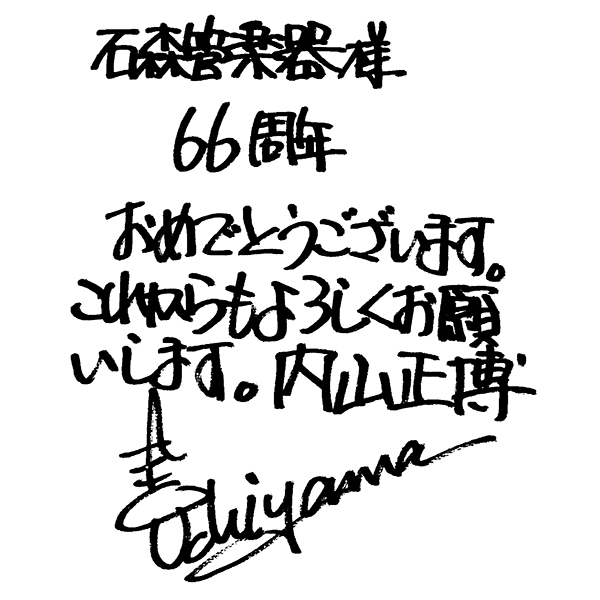 石森管楽器様
66周年
おめでとうございます。
これからもよろしくお願
いします。内山正博
Uchiyama